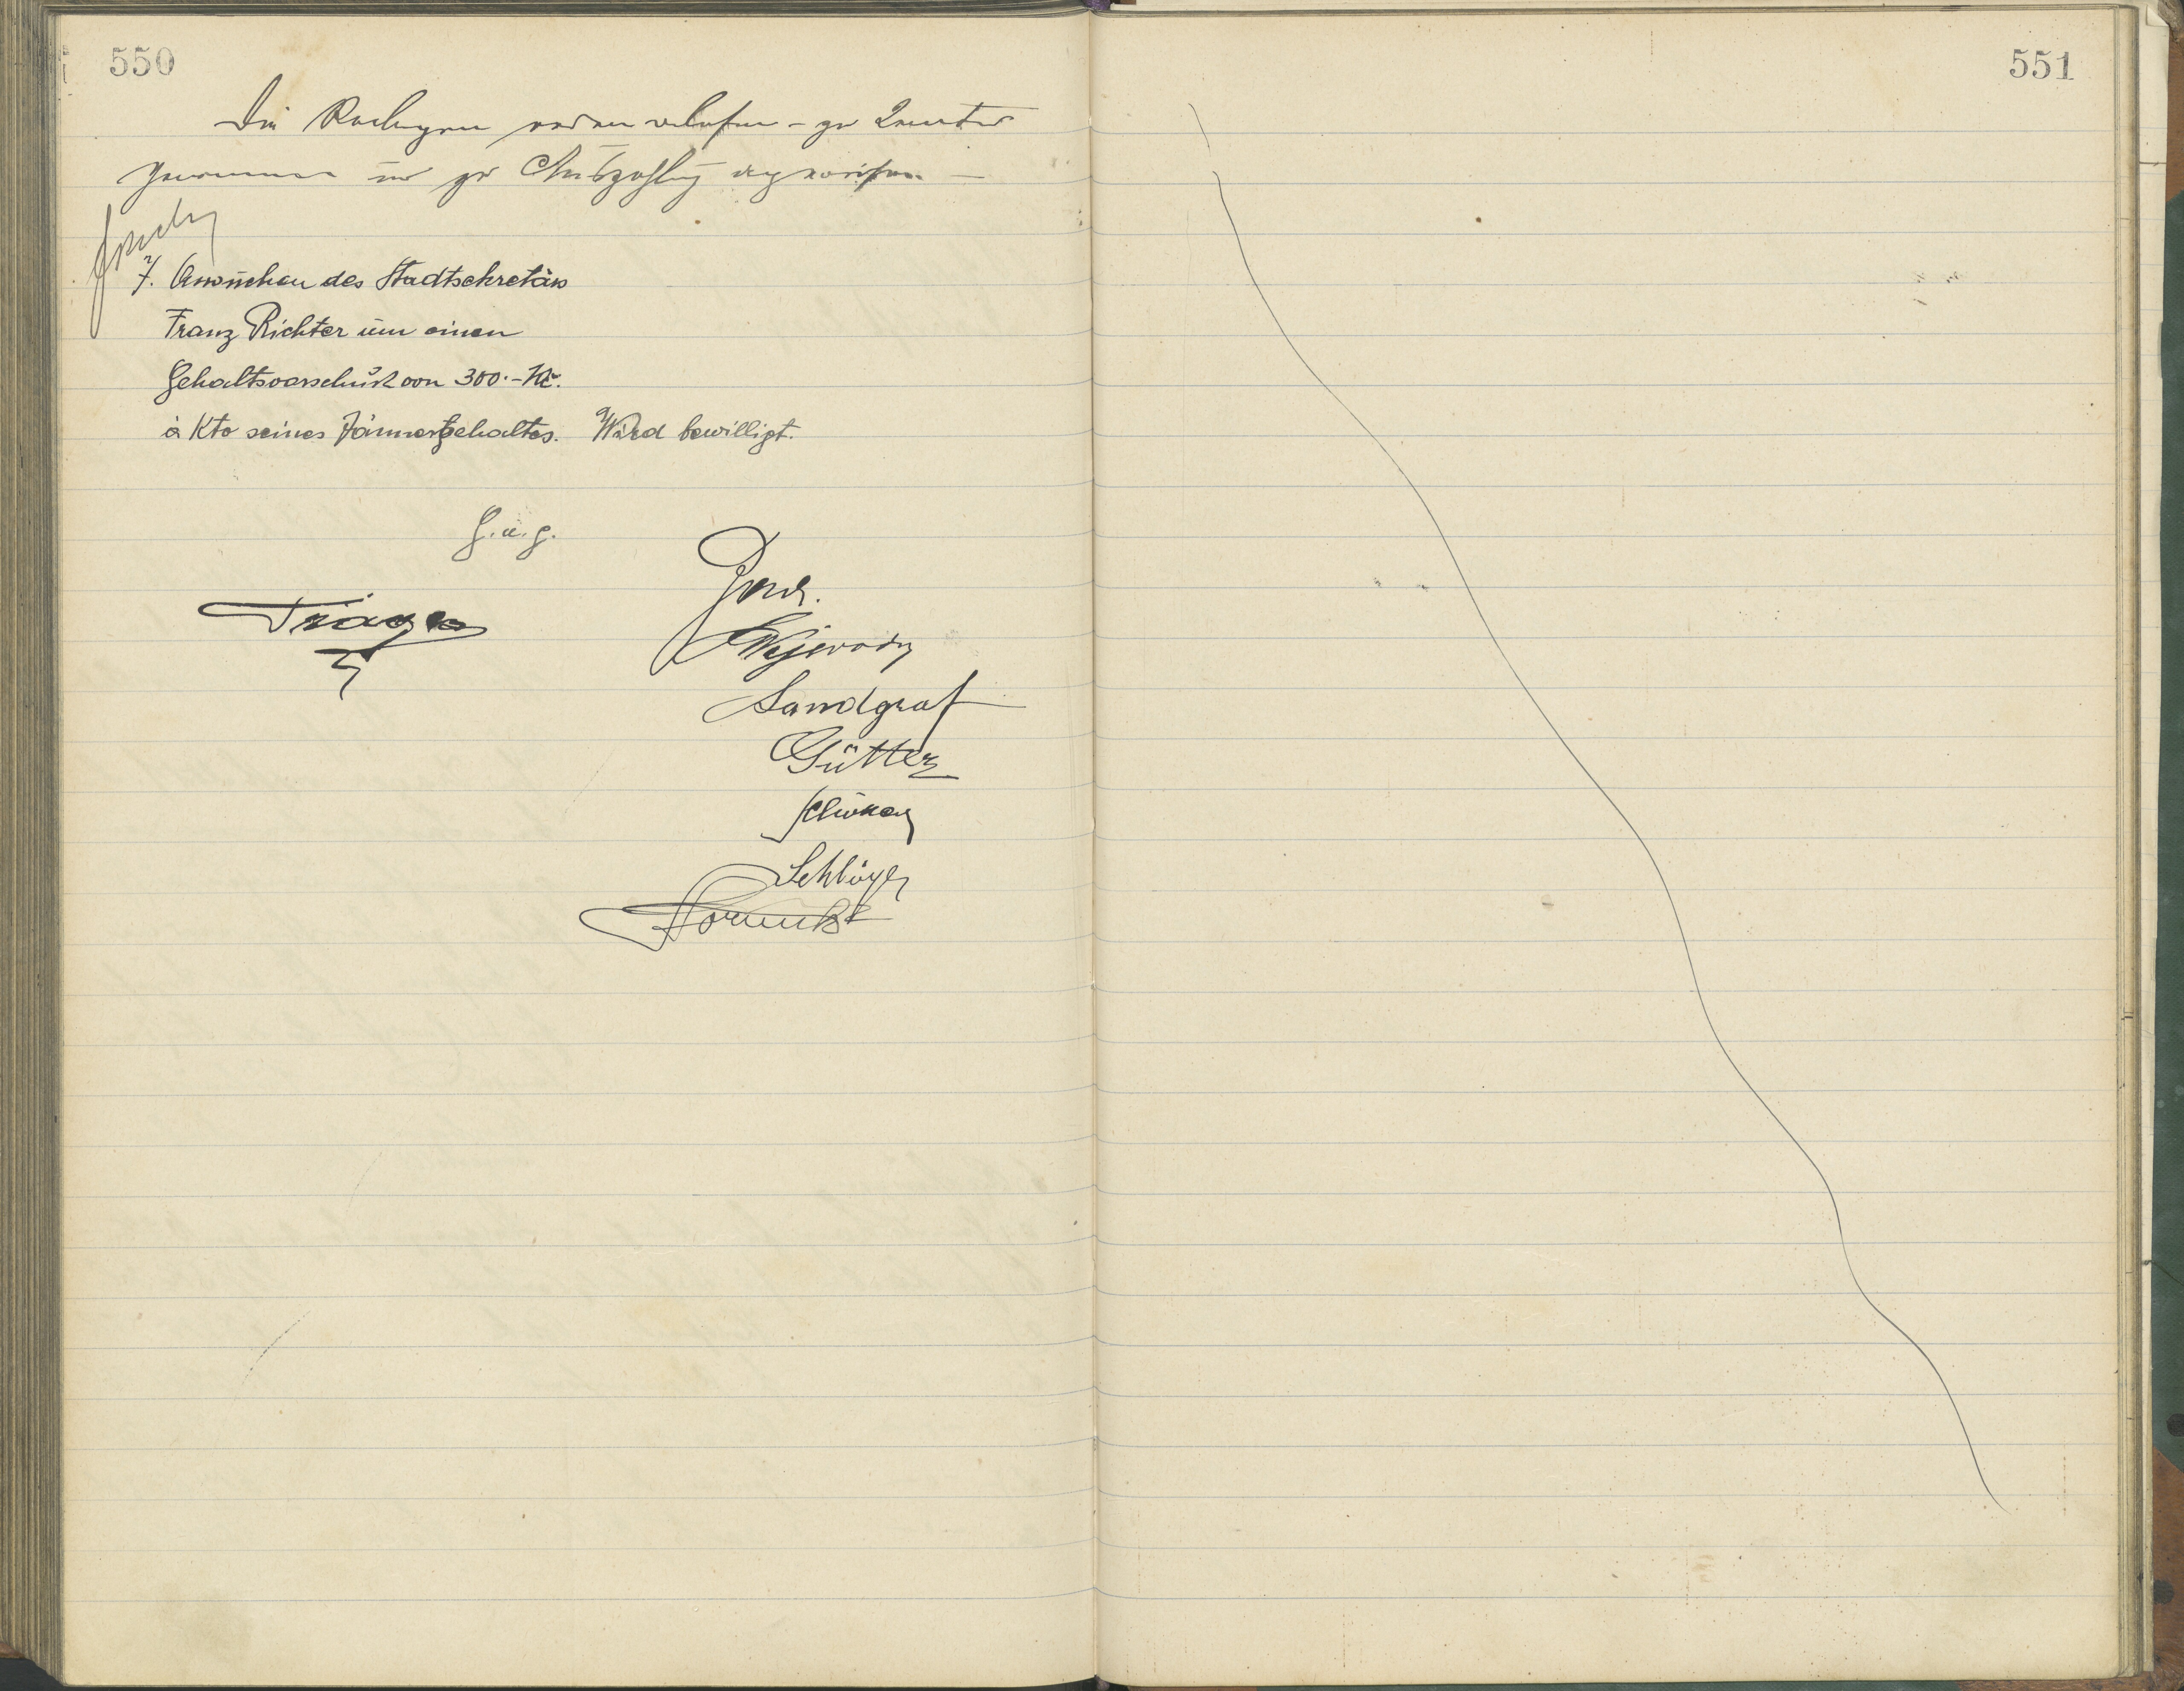 550
551
Die Rechnungen werden verlesen - zur Kenntnis
genommen und zur Auszahlung angewiesen -
7. Ansuchen des Stadtsekretärs
Franz Richter um einen
Gehaltsvorschuß von 300.- Kč.
à Kto seines Jännergehaltes. Wird bewilligt.
G. u. g.
Träger
Landgraf
Gütter